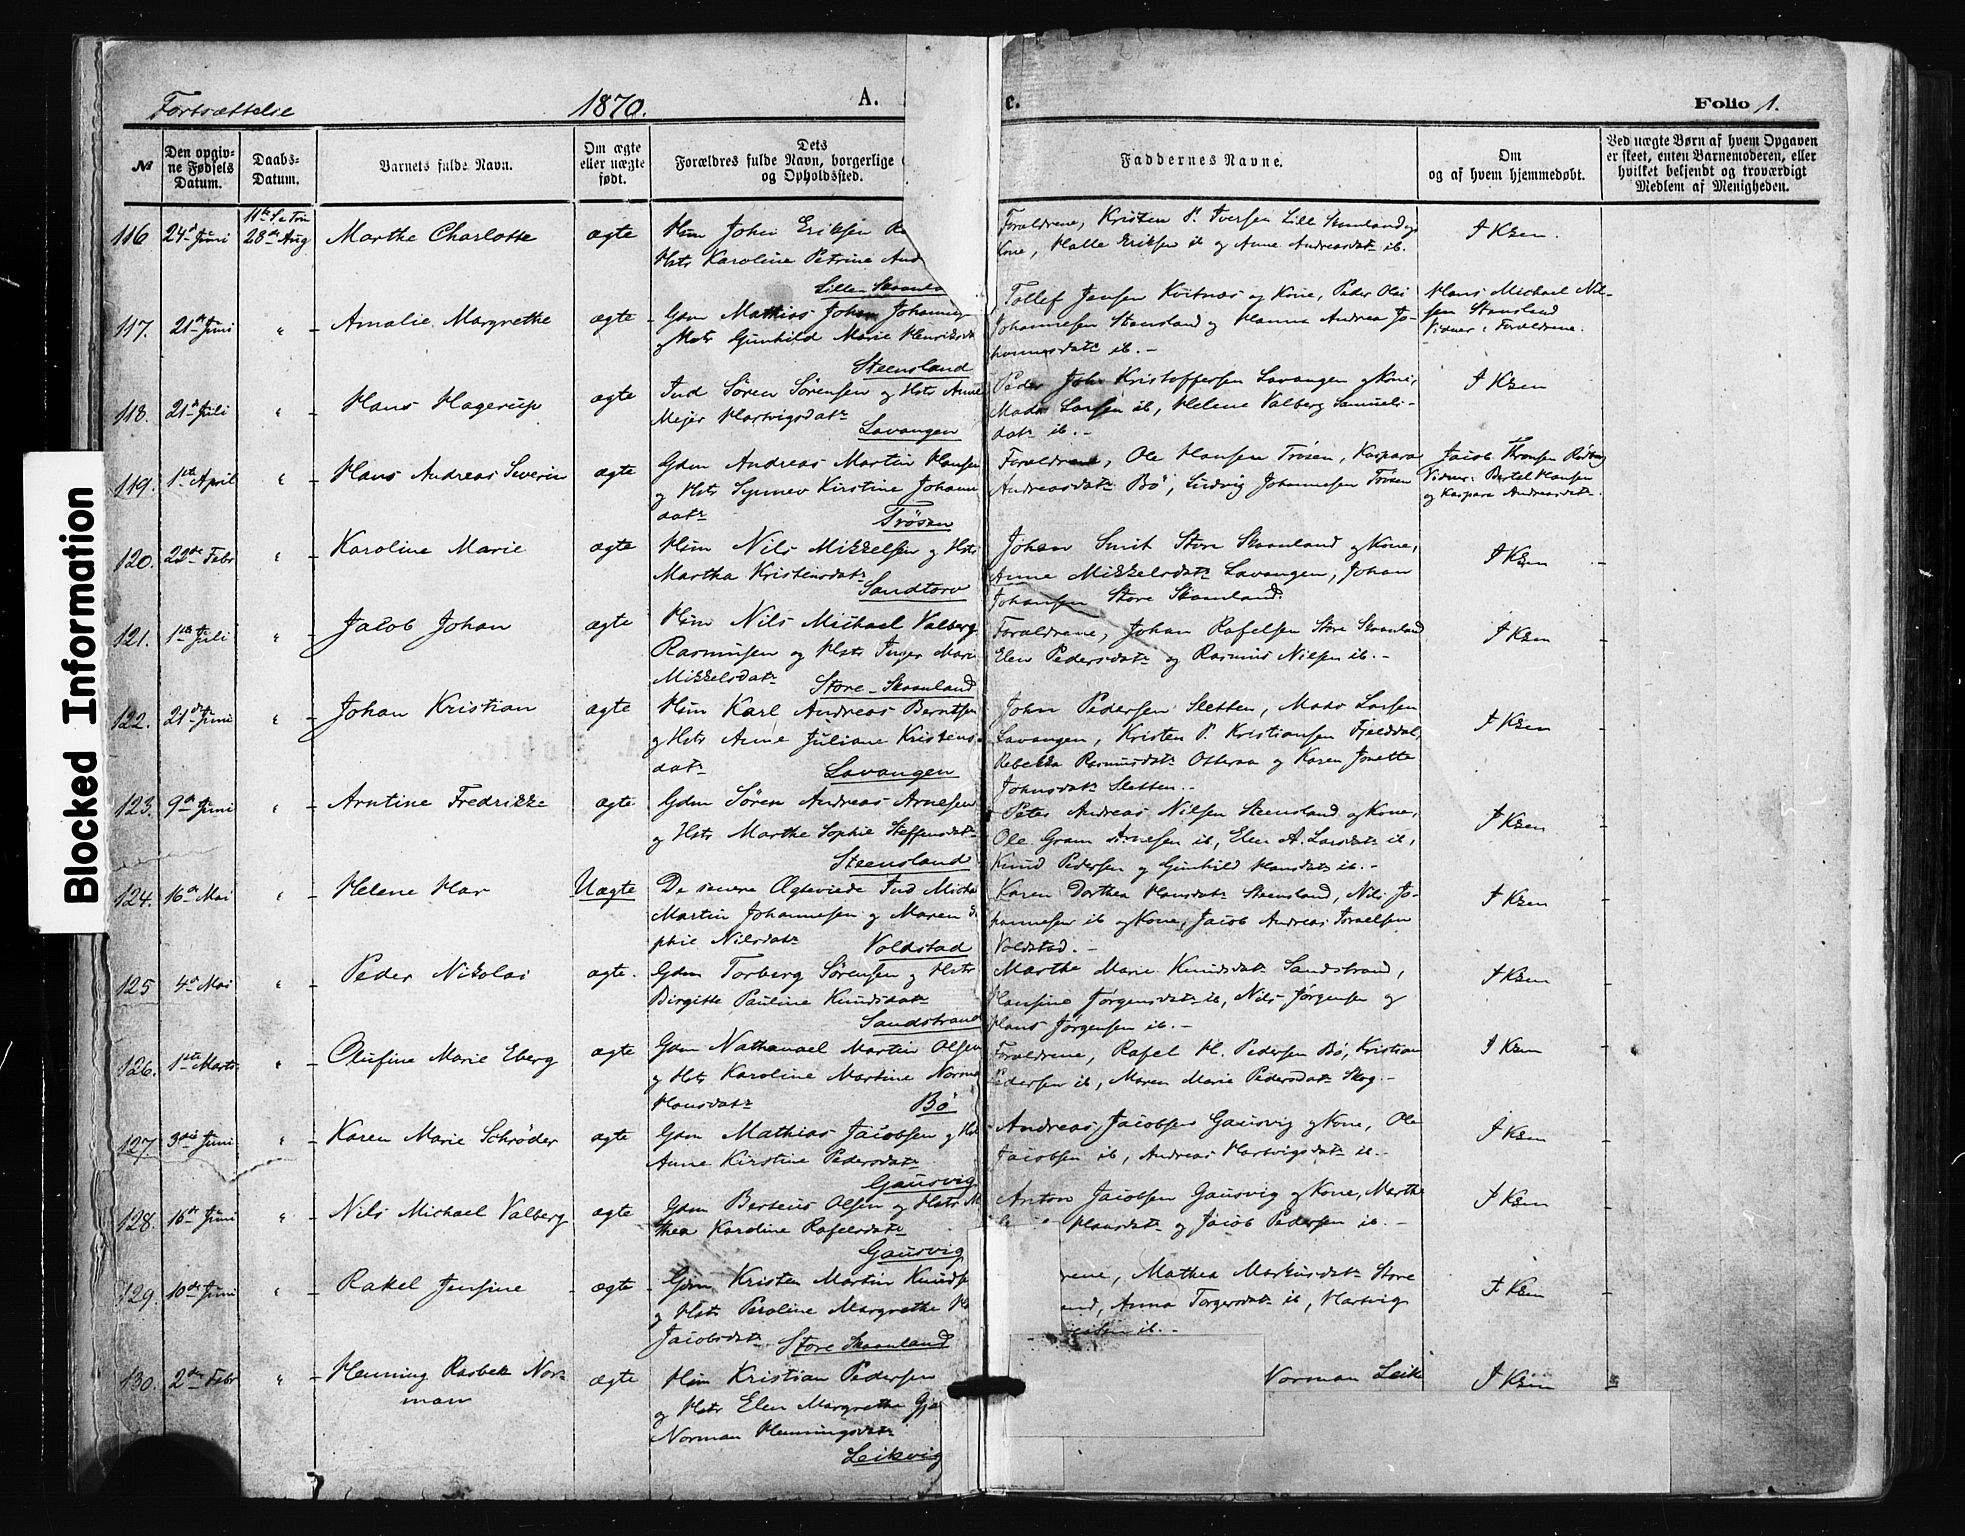 Fortsættelse 1870. A. c. Folio 1.
№
Den opgiv-
ne Fødsels
Datum.
Daabs-
Datum.
Barnets fulde Navn.
Om ægte
eller uægte
født.
Dets
Forældres fulde Navn, borgerlige
og Opholdssted.
Faddernes Navne.
Om
og af hvem hjemmedøbt.
Ved uægte Børn af hvem Opgaven
er skeet, enten Barnemoderen, eller
hvilket bekjendt og troværdigt
Medlem af Menigheden.
116 24de Juni 28de Aug Marthe Charlotte ægte
Hmn Johan Eriksen
Hstr Karoline Petrine And
Lille-Skaanla
Forældrene, Kristen P. Iversen Lille Skaanland og
Kone, Halle Eriksen ib og Anne Andreasdatr ib.
I Kken.
117. 21de Juni " Amalie Margrethe ægte
Gdm Mathias Johan Johannes
og Hstr Gunhild Marie Henriksdt
Steensland
Tollef Jensen Kvitnæs og Kone, Peder Olai
Johannesen Stensland og Hanna Andrea Jo-
hannesdatr ib. -
Hans Michael Nil-
sen Stensland
Vidner: Forældrene.
118. 21de Juli " Hans Hagerup ægte
Ind Sören Sörensen og Hstr Anne
Mejer Hartvigsdatr
Lavangen
Peder John Kristoffersen Lavangen og Kone,
Mads Larsen ib, Helene Valberg Samuels-
datr ib. -
I Kken
119. 1ste April " Hans Andreas Severin ægte
Gdm Andreas Martin Hansen
og Hstr Synnev Kirstine Johann
datr Trössen
Forældrene, Ole Hansen Trösen, Kaspara
Andreasdatr Bö, Ludvig Johannesen Trösen
Jacob Thronsen
Vidner: Bertel Hansen
og Kaspara Andreasdatr.
120. 22de Febr " Karoline Marie ægte
Hmn Nils Mikkelsen og Hstr
Martha Kristensdatr
Sandtorv
Johan Smit Store Skaanland og Kone,
Anne Mikkelsdatr Lavangen, Johan
Johansen Store Skaanland.
I Kken
121. 1ste Juli " Jacob Johan ægte
Hmn Nils Michael Valberg
Rasmussen og Hstr Inger Marie
Mikkelsdatr Store-Skaanland
Forældrene, Johan Rafelsen Store Skaanland
Elen Pedersdatr og Rasmus Nilsen ib. -
I Kken
122. 21de Juni " Johan Kristian ægte
Hmn Karl Andreas Berntsen
og Hstr Anne Juliane Kristens
datr Lavangen
John Pedersen Sletten, Mads Larsen
Lavangen, Kristen P. Kristiansen Fjelddal,
Rebekka Rasmusdatr Otteraa og Karen Jonette
Johnsdatr Sletten. -
I Kken
123. 9de Juni " Arntine Fredrikke ægte
Gdm Sören Andreas Arnesen
og Hstr Marthe Sophie Steffensdatr
Steensland
Peter Andreas Nilsen Steensland og Kone,
Ole Gram Arnesen ib, Elen A. Larsdatr ib,
Knud Pedersen og Gunhild Hansdatr ib. -
I Kken
124. 16de Mai " Helene Har Uægte
De senere Ægteviede Ind Micha
Martin Johannesen og Maren
phie Nilsdatr Voldstad
Karen Dorthea Hansdatr Steensland, Nils Jo-
hannesen ib og Kone, Jacob Andreas Israelsen
Voldstad. -
I Kken
125 4de Mai " Peder Nikolai ægte.
Gdm Torberg Sörensen og Hstr
Birgitte Pauline Knudsdatr
Sandstrand
Marthe Marie Knudsdatr Sandstrand,
Hansine Jörgensdatr ib, Nils Jörgensen og
Hans Jörgensen ib. -
I Kken
126. 1ste Marts " Olufine Marie Eberg ægte
Gdm Nathanael Martin Olsen
og Hstr Karoline Martine Norma
Hansdatr Bö
Forældrene, Rafel H. Pedersen Bö, Kristian
Pedersen ib, Maren Marie Pedersdatr Skog. -
I Kken
127. 3die Juni " Karen Marie Schröder ægte
Gdm Mathias Jacobsen og Hst
Anne Kirstine Pedersdatr
Gausvig
Andreas Jacobsen Gausvig og Kone, Ole
Jacobsen ib, Andrea Hartvigsdatr ib. -
I Kken
128. 16de Juni " Nils Michael Valberg ægte
Gdm Berteus Olsen og Hstr M
thea Karoline Rafelsdatr
Gausvig
Anton Jacobsen Gausvig og Kone, Marthe
Hansdatr og Jacob Pedersen ib. -
I Kken
129. 10de Juni " Rakel Jensine ægte
Gdm Kristen Martin Knuds
og Hstr Peroline Margrethe
Jacobsdatr Store Skaanland
rene, Mathea Markusdatr Store
and, Anna Torgersdatr ib, Hartvig
ib. -
I Kken
130. 2den Febr " Henning Rasbek Nor-
man ægte
Hmn Kristian Pedersen
og Hstr Elen Margrethe Gja
Norman Henningsdatr
Leikvig
Norman Leik
I Kken
Blocked Information